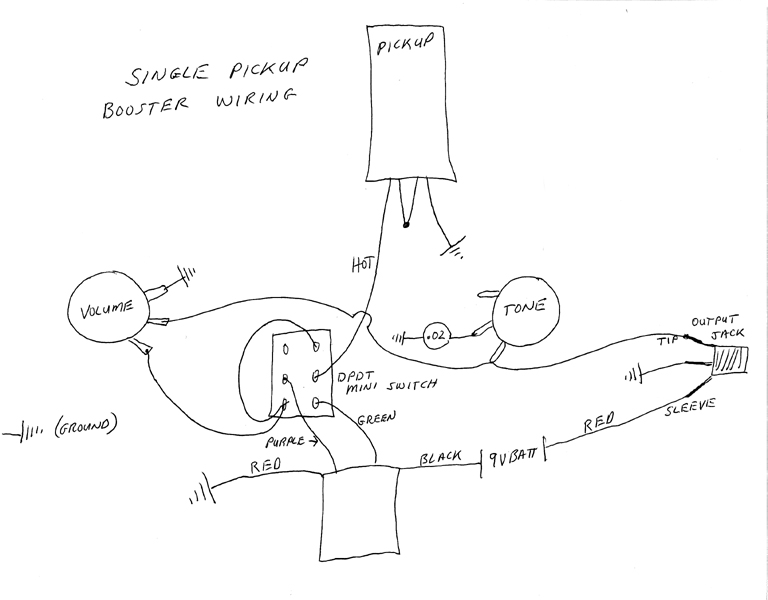 SINGLE PICKUP
BOOSTER WIRING
PICKUP
HOT
VOLUME
TONE
.02
OUTPUT
JACK
TIP
DPDT
MINI SWITCH
SLEEVE
(GROUND)
GREEN
PURPLE →
RED
BLACK
9V BATT
RED